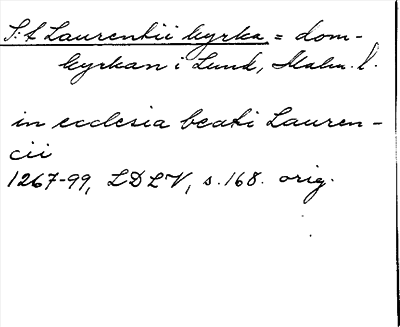 S:t Laurentii kyrka = dom-
kyrkan i Lund, Malm. l.
in ecclesia beati Lauren-
cii
1267-99, LDLV, s. 168. orig.